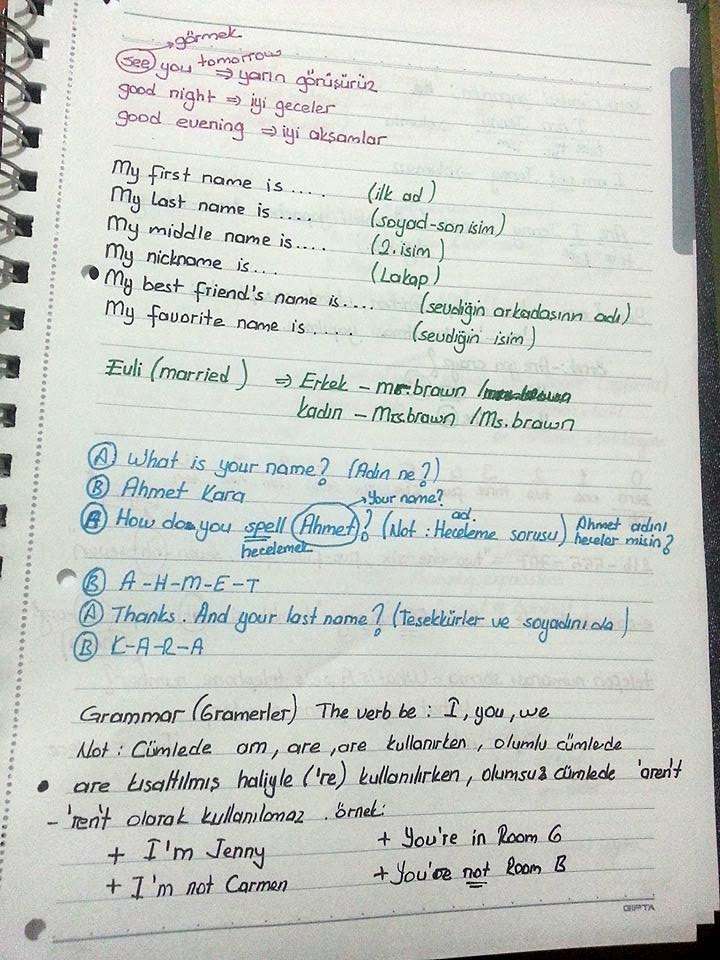 görmek
see you tomorrow ⇒ yarın görüşürüz
good night ⇒ iyi geceler
good evening ⇒ iyi akşamlar
My first name is .... (ilk ad)
My last name is .... (soyad-son isim)
My middle name is.... (2. isim)
My nickname is... (Lakap)
My best friend's name is.... (sevdiğin arkadasının adı)
My favorite name is.... (sevdiğin isim)
Evli (married) ⇒ Erkek - mr.brown /
kadın - Mrs.brown /Ms. brown
A What is your name? (Adın ne?)
B Ahmet Kara
Your name?
A How do you spell Ahmet? (Not : Heceleme sorusu) Ahmet adını
ad
hecelemek heceler misin?
B A-H-M-E-T
A Thanks. And your last name? (Teşekkürler ve soyadınıda)
B K-A-R-A
Grammar (Gramerler) The verb be : I, you, we
Not : Cümlede am, are, are kullanırken, olumlu cümlede
are kısaltılmış haliyle ('re) kullanılırken, olumsuz cümlede 'aren't
- 'ren't olarak kullanılamaz. örnek:
+ I'm Jenny + You're in Room G
+ I'm not Carmen + You're not Room B
GIPTA